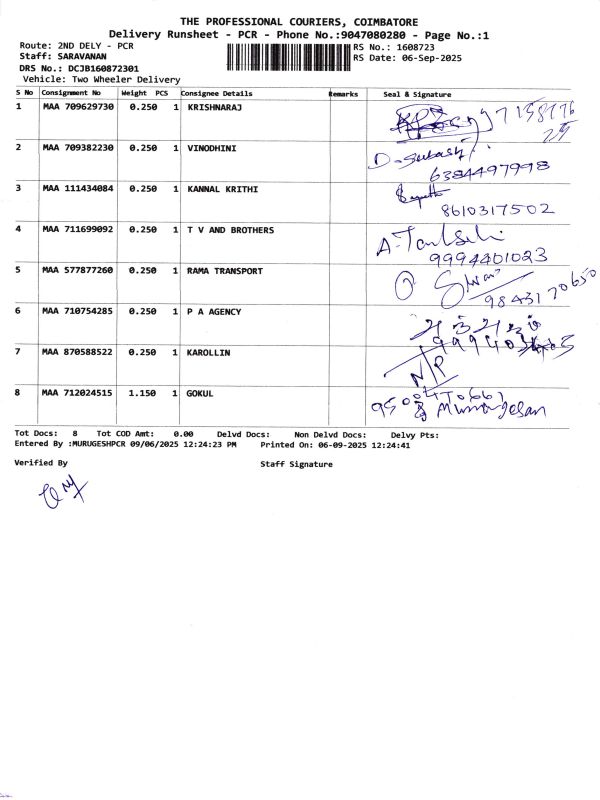 THE PROFESSIONAL COURIERS, COIMBATORE
Delivery Runsheet - PCR - Phone No.:9047080280 - Page No.:1
Route: 2ND DELY - PCR
RS No.: 1608723
Staff: SARAVANAN
RS Date: 06-Sep-2025
DRS No.: DCJB160872301
Vehicle: Two Wheeler Delivery
S No Consignment No Weight PCS Consignee Details Remarks Seal & Signature
1 MAA 709629730 0.250 1 KRISHNARAJ
2 MAA 709382230 0.250 1 VINODHINI D-Subash
6384497998
3 MAA 111434084 0.250 1 KANNAL KRITHI
8610317502
4 MAA 711699092 0.250 1 T V AND BROTHERS
9994401023
5 MAA 577877260 0.250 1 RAMA TRANSPORT
9843170650
6 MAA 710754285 0.250 1 P A AGENCY
7 MAA 870588522 0.250 1 KAROLLIN N/P
8 MAA 712024515 1.150 1 GOKUL
Murugesan
Tot Docs: 8 Tot COD Amt: 0.00 Delvd Docs: Non Delvd Docs: Delvy Pts:
Entered By :MURUGESHPCR 09/06/2025 12:24:23 PM Printed On: 06-09-2025 12:24:41
Verified By Staff Signature